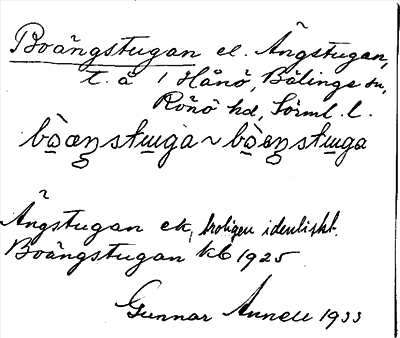 Boängstugan el. Ängstugan,
t. å 1 Hånö, Bälinge sn,
Rönö hd, Sörml. l.
bòæŋstuga ~ bòeŋstuga
Ängstugan ek, troligen identiskt.
Boängstugan kb 1925
Gunnar Annell 1933